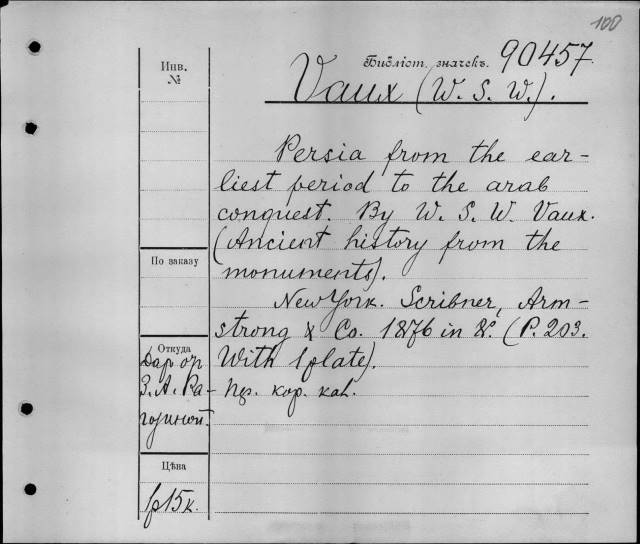 100
Библіст. значекъ. 90457.
Инв.
№
Vaux (W. S. W.).
Persia from the ear-
liest period to the arab
conquest. By W. S. W. Vaux.
(Ancient history from the
monuments).
New York. Scribner, Arm-
strong & Co. 1876 in 8°. (P. 203.
With 1 plate).
По заказу
Откуда
Дар от
З. А. Ра-
гозиной.
кор.
Цѣна
1р15к.